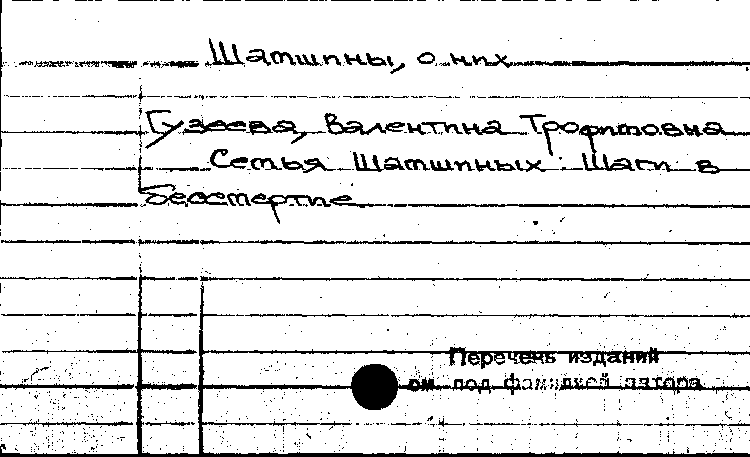 Шамшины, о них
Гузеева, Валентина Трофимовна
Семья Шамшиных : Шаги в
бессмертие
Перечень изданий
см. под фамилией автора